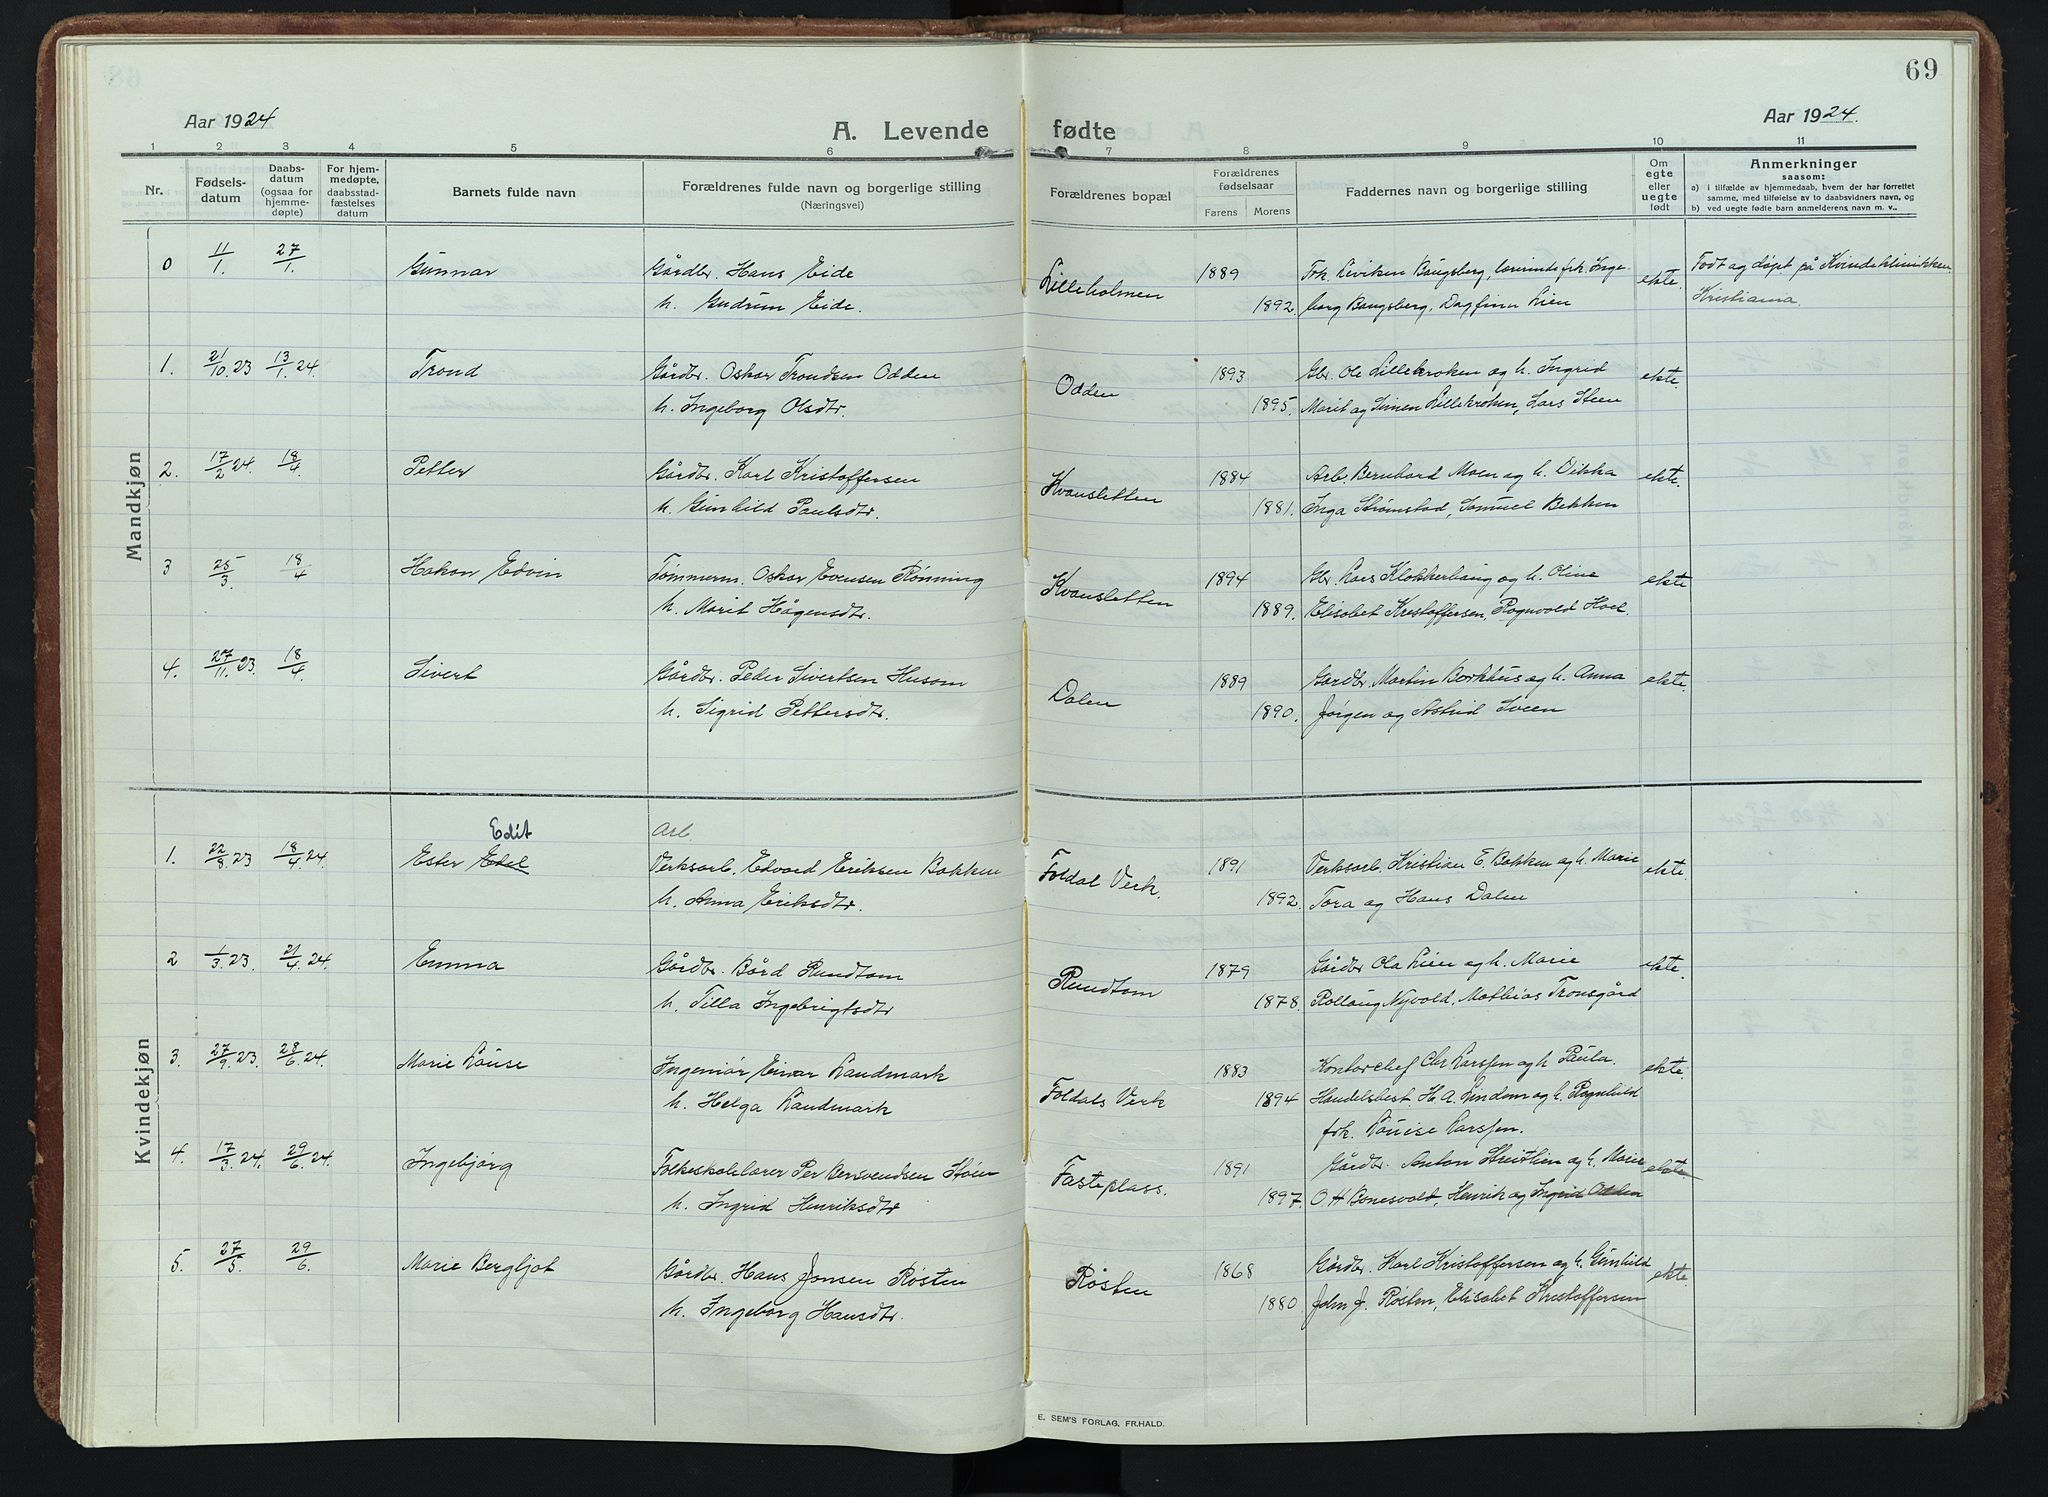 69
Aar 1924
A. Levende fødte
Aar 1924.
1 2 3 4 5 6 7 8 9 10 11
Nr.
Fødsels-
datum
Daabs-
datum
(ogsaa for
hjemme-
døpte)
For hjem-
medøpte,
daabsstad-
fæstelses
datum
Barnets fulde navn
Forældrenes fulde navn og borgerlige stilling
(Næringsvei)
Forældrenes bopæl
Forældrenes
fødselsaar
Farens Morens
Faddernes navn og borgerlige stilling
Om
egte
eller
uegte
født
Anmerkninger
saasom:
a) i tilfælde av hjemmedaab, hvem der har forrettet
samme, med tilføielse av to daabsvidners navn, og
b) ved uegte fødte barn anmelderens navn m. v..
Mandkjøn
0 11/1. 27/1. Gunnar Gårdbr. Hans Eide Lilleholmen 1889 Frk. Liviken Bangsberg, lærerinde frk. Inge- ekte. Født og døpt på Kvindeklinikken
h. Gudrun Eide. 1892. borg Bangsberg, Dagfinn Lien Kristiania
1. 21/10.23 13/1.24. Trond Gårdbr. Oskar Trondsen Odden Odden 1893 Gbr. Ole Lillekroken og h. Ingrid ekte.
h. Ingeborg Olsdtr. 1895. Marit og Simen Lillekroken, Lars Steen
2. 17/2 24. 18/4 Petter Gårdbr. Karl Kristoffersen Kvansletten 1884 Arb. Bernhard Moen og h. Dikka ekte.
h. Gunhild Paulsdtr. 1881. Inga Strømstad, Samuel Bekken
3 25/3. 18/4 Hakon Edvin Tømmerm. Oskar Evensen Rønning Kvansletten 1894 Gbr. Lars Klokkerhaug og h. Oline ekte
h. Marit Hågensdtr. 1889. Elisabet Kristoffersen, Ragnvald Hoel.
4. 27/11.23. 18/4. Sivert Gårdbr. Peder Sivertsen Husom Dalen 1889 Gardbr. Martin Borkhus og h. Anna ekte.
h. Sigrid Pettersdtr. 1890. Jørgen og Astrid Sveen
Kvindekjøn
Edit Arb
1. 22/8 23 18/4 24. Ester Edel Verksarb. Edvard Eriksen Bakken Foldal Verk. 1891 Verksarb. Kristian E. Bakken og h. Marie ekte.
h. Anna Eriksdtr. 1892. Tora og Hans Dalen
2 1/3.23. 21/4.24. Emma Gårdbr. Bård Rundtom Rundtom 1879 Gårdbr Ola Lien og h. Marie ekte.
h. Tilla Ingebrigtsdtr 1878. Rollaug Nyvold, Mathias Tronsgård
3. 27/9.23. 28/6.24 Marie Louise Ingeniør Einar Landmark Foldals Verk 1883 Kontorchef Chr Larssen og h Paula. ekte.
h. Helga Landmark 1894 Handelsbest. H. A. Lindem og h. Ragnhild
frk. Louise Larssen.
4. 17/3.24. 29/6.24. Ingebjørg Folkeskolelærer Per Bersvendsen Støen Fasteplass. 1891 Gårdbr. Anton Streitlien og h. Marie ekte.
h. Ingrid Henriksdtr 1897. O H Bonesvold, Henrik og Ingrid Odden
5. 27/5. 29/6. Marie Bergljot Gårdbr. Hans Jonsen Røsten Røsten 1868 Gårdbr. Karl Kristoffersen og h. Gunhild ekte
h. Ingeborg Hansdtr. 1880. John J. Røsten, Elisabet Kristoffersen
E. SEM'S FORLAG, FR.HALD.